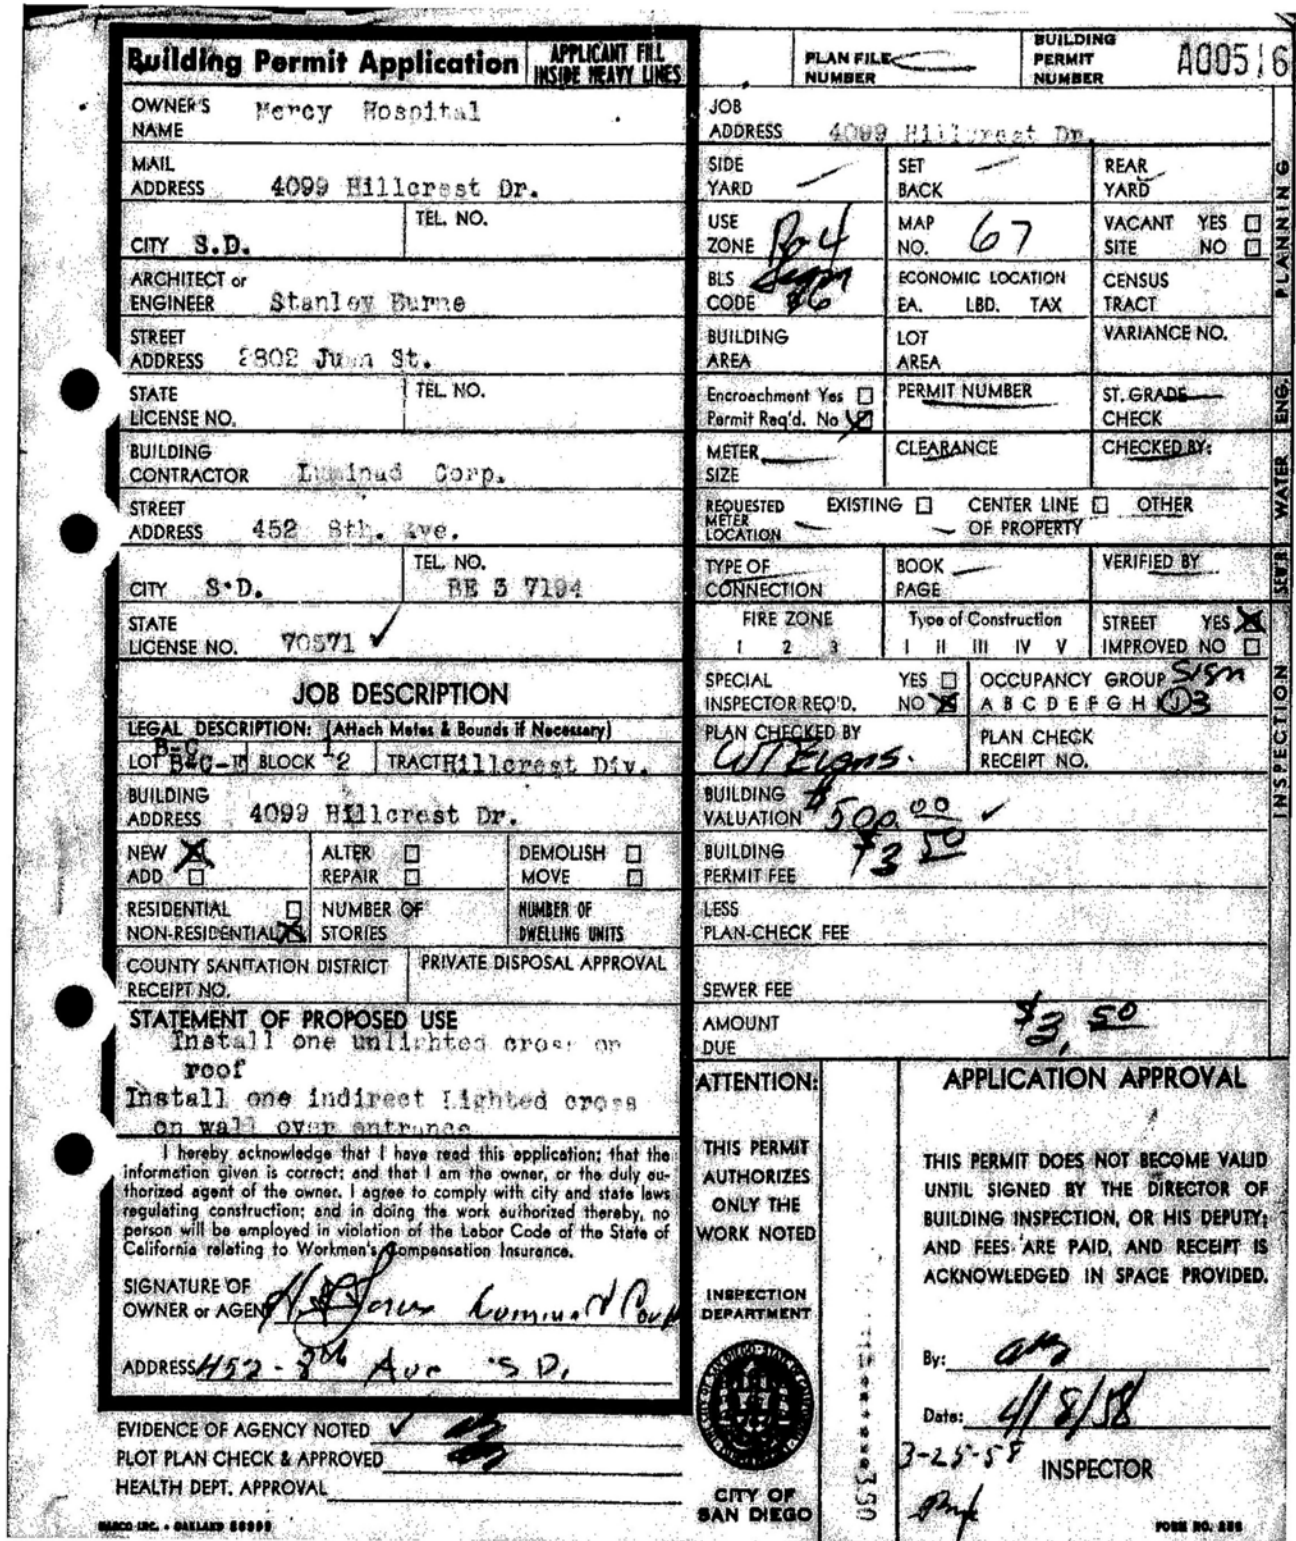 Building Permit Application
APPLICANT FILL
INSIDE HEAVY LINES
OWNER'S
NAME Mercy Hospital
MAIL
ADDRESS 4099 Hillcrest Dr.
CITY S.D.
TEL. NO.
ARCHITECT or
ENGINEER Stanley Burne
STREET
ADDRESS 2802 Juan St.
STATE
LICENSE NO.
TEL. NO.
BUILDING
CONTRACTOR Luminad Corp.
STREET
ADDRESS 452 8th. Ave.
CITY S.D.
TEL. NO.
BE 3 7194
STATE
LICENSE NO. 70571 ✓
JOB DESCRIPTION
LEGAL DESCRIPTION: (Attach Metes & Bounds if Necessary)
B-C
LOT BLOCK 2 TRACT Hillcrest Div.
BUILDING
ADDRESS 4099 Hillcrest Dr.
NEW ALTER DEMOLISH
ADD REPAIR MOVE
RESIDENTIAL NUMBER OF NUMBER OF
NON-RESIDENTIAL STORIES DWELLING UNITS
COUNTY SANITATION DISTRICT PRIVATE DISPOSAL APPROVAL
RECEIPT NO.
STATEMENT OF PROPOSED USE
Install one unlighted cross on
roof
Install one indirect Lighted cross
on wall over entrance
I hereby acknowledge that I have read this application; that the
information given is correct; and that I am the owner, or the duly au-
thorized agent of the owner. I agree to comply with city and state laws
regulating construction; and in doing the work authorized thereby, no
person will be employed in violation of the Labor Code of the State of
California relating to Workmen's Compensation Insurance.
SIGNATURE OF
OWNER or AGENT
ADDRESS 452-8th Ave S.D.
EVIDENCE OF AGENCY NOTED ✓
PLOT PLAN CHECK & APPROVED
HEALTH DEPT. APPROVAL
PLAN FILE
NUMBER
BUILDING
PERMIT
NUMBER A00516
JOB
ADDRESS 4099 Hillcrest Dr.
SIDE
YARD
SET
BACK
REAR
YARD
USE
ZONE R-4
MAP
NO. 67
VACANT YES
SITE NO
BLS
CODE
ECONOMIC LOCATION
EA. LBD. TAX
CENSUS
TRACT
BUILDING
AREA
LOT
AREA
VARIANCE NO.
Encroachment Yes
Permit Req'd. No
PERMIT NUMBER
ST. GRADE
CHECK
METER
SIZE
CLEARANCE
CHECKED BY:
REQUESTED
METER
LOCATION
EXISTING CENTER LINE OTHER
OF PROPERTY
TYPE OF
CONNECTION
BOOK
PAGE
VERIFIED BY
FIRE ZONE
1 2 3
Type of Construction
I II III IV V
STREET YES
IMPROVED NO
SPECIAL YES
INSPECTOR REQ'D. NO
OCCUPANCY GROUP Sign
A B C D E F G H I J 3
PLAN CHECKED BY
PLAN CHECK
RECEIPT NO.
BUILDING
VALUATION $500.00 ✓
BUILDING
PERMIT FEE $3 50
LESS
PLAN-CHECK FEE
SEWER FEE
AMOUNT
DUE $3.50
PLANNING
ENG.
WATER
SEWR
INSPECTION
ATTENTION:
THIS PERMIT
AUTHORIZES
ONLY THE
WORK NOTED
INSPECTION
DEPARTMENT
CITY OF
SAN DIEGO
APPLICATION APPROVAL
THIS PERMIT DOES NOT BECOME VALID
UNTIL SIGNED BY THE DIRECTOR OF
BUILDING INSPECTION, OR HIS DEPUTY;
AND FEES ARE PAID, AND RECEIPT IS
ACKNOWLEDGED IN SPACE PROVIDED.
By:
Date: 4/8/58
3-25-58
INSPECTOR
FORM NO.